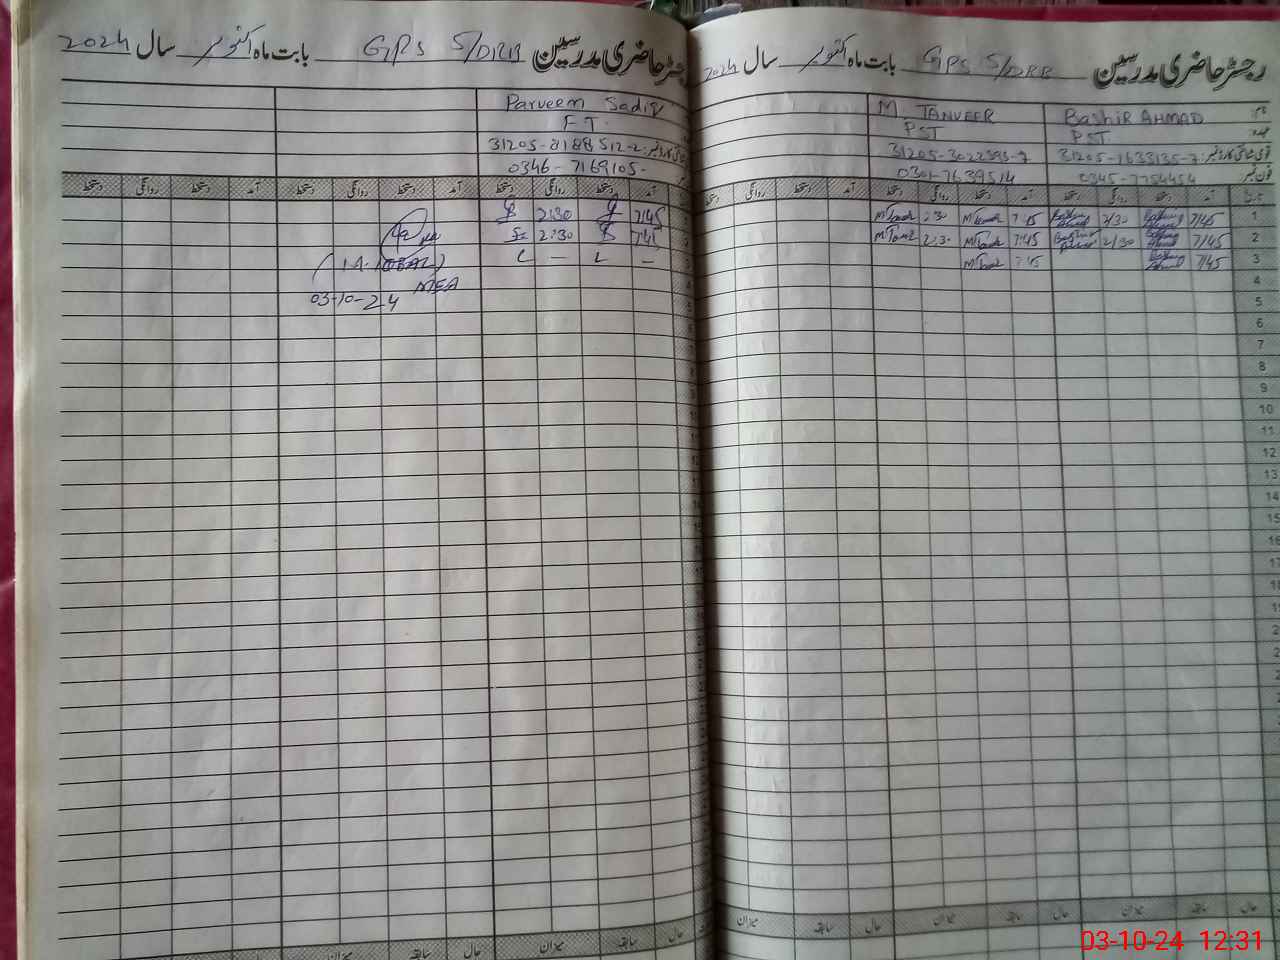 رجسٹر حاضری مدرسین GPS 5/DRB بابت ماہ اکتوبر سال 2024
نام Bashir AHMAD M. TANVEER
عہدہ PST. PST
قومی شناختی کارڈ نمبر 31205-7633135-7 31205-3022393-7
فون نمبر 0345-7754454 0301-7639514
تاریخ آمد دستخط روانگی دستخط آمد دستخط روانگی دستخط آمد دستخط روانگی دستخط
1 7/45 2/30 7:45 2:30
2 7/45 2/30 7:45 2:30
3 7/45 7:45
4
5
6
7
8
9
10
11
12
13
14
15
16
17
حال سابقہ میزان حال سابقہ میزان حال سابقہ میزان
رجسٹر حاضری مدرسین GPS 5/DRB بابت ماہ اکتوبر سال 2024
Parveen Sadiq
F T.
31205-8188512-2
0346-7169105.
آمد دستخط روانگی دستخط آمد دستخط روانگی دستخط آمد دستخط روانگی دستخط
7:45 2:30
7:45 2:30
— L — L
MEA
03-10-24
حال سابقہ میزان حال سابقہ میزان
03-10-24 12:31